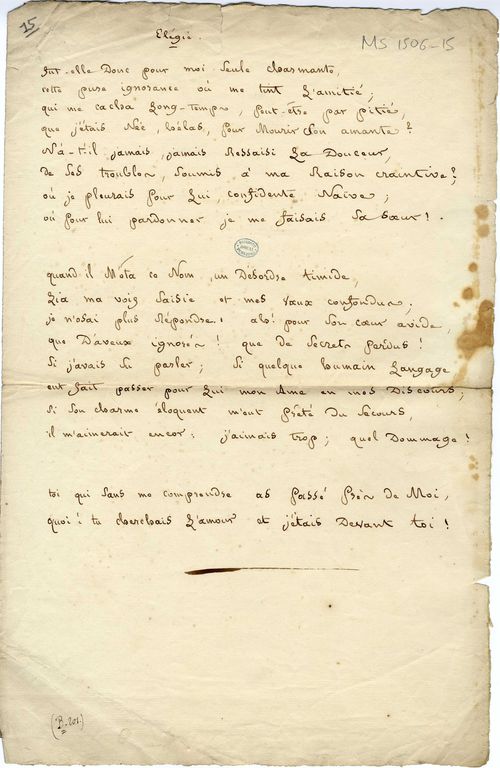 15
Elégie.
MS 1506-15
fut-elle Donc pour moi seule charmante,
cette pure ignorance où me tint L'amitié;
qui me cacha Long-temps, Peut-être par pitié,
que j'étais Née, hélas, Pour Mourir Son amante?
N'a-t-il jamais, jamais Ressaisi La Douceur,
de Ses troubles, Soumis à ma Raison craintive?
où je pleurais Pour Lui, confidente Naïve;
où Pour lui pardonner je me faisais Sa sœur!
quand il M'ôta ce Nom, un Désordre timide,
Lia ma voix Saisie et mes yeux confondus;
je n'osai plus Répondre. ah! pour Son cœur avide,
que D'aveux ignorés! que de Secrets Perdus!
Si j'avais su parler; Si quelque humain Langage
eut fait passer pour Lui mon Ame en mes Discours;
Si Son charme éloquent m'eut Prêté Du Secours,
il m'aimerait encor: j'aimais trop; quel Dommage!
toi qui Sans me comprendre as Passé Près de Moi,
quoi! tu cherchais L'amour et j'étais Devant toi!
(B-201.)